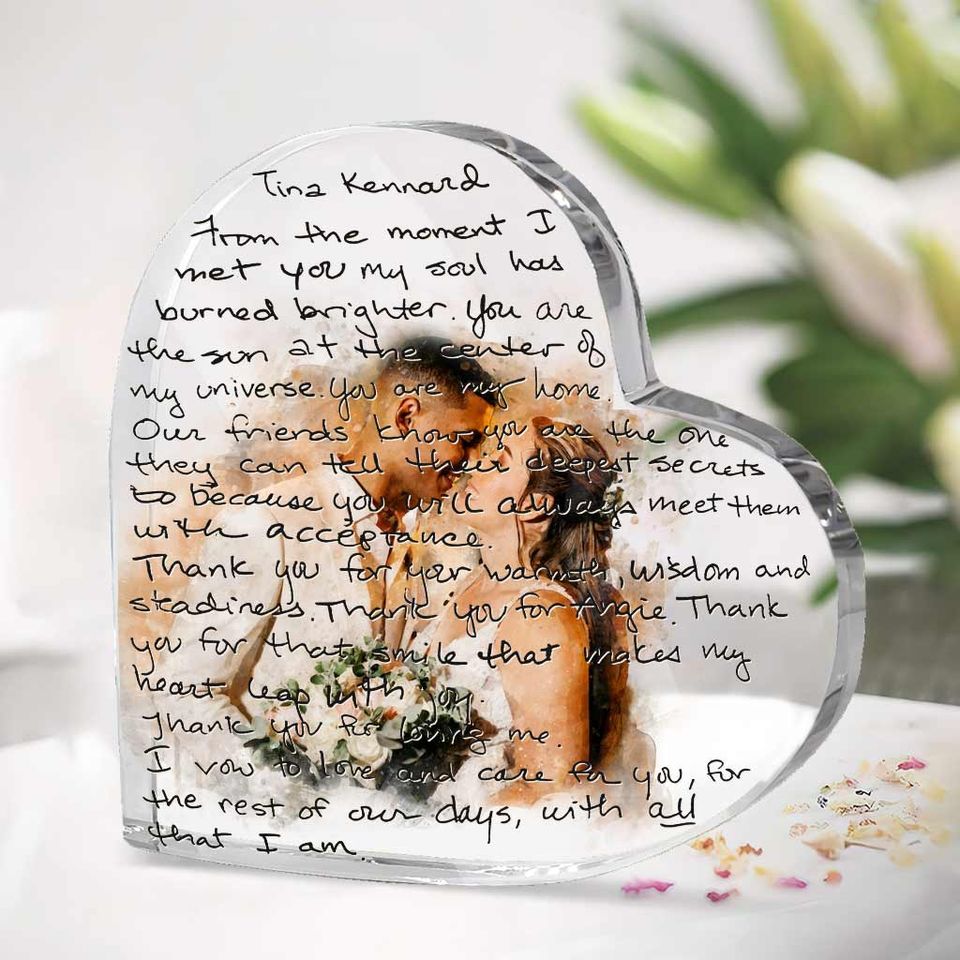 Tina Kennard
From the moment I
met you my soul has
burned brighter. You are
the sun at the center of
my universe. You are my home.
Our friends know you are the one
they can tell their deepest secrets
to because you will always meet them
with acceptance.
Thank you for your warmth, wisdom and
steadiness. Thank you for Angie. Thank
you for that smile that makes my
heart leap with joy.
Thank you for loving me.
I vow to love and care for you, for
the rest of our days, with all
that I am.